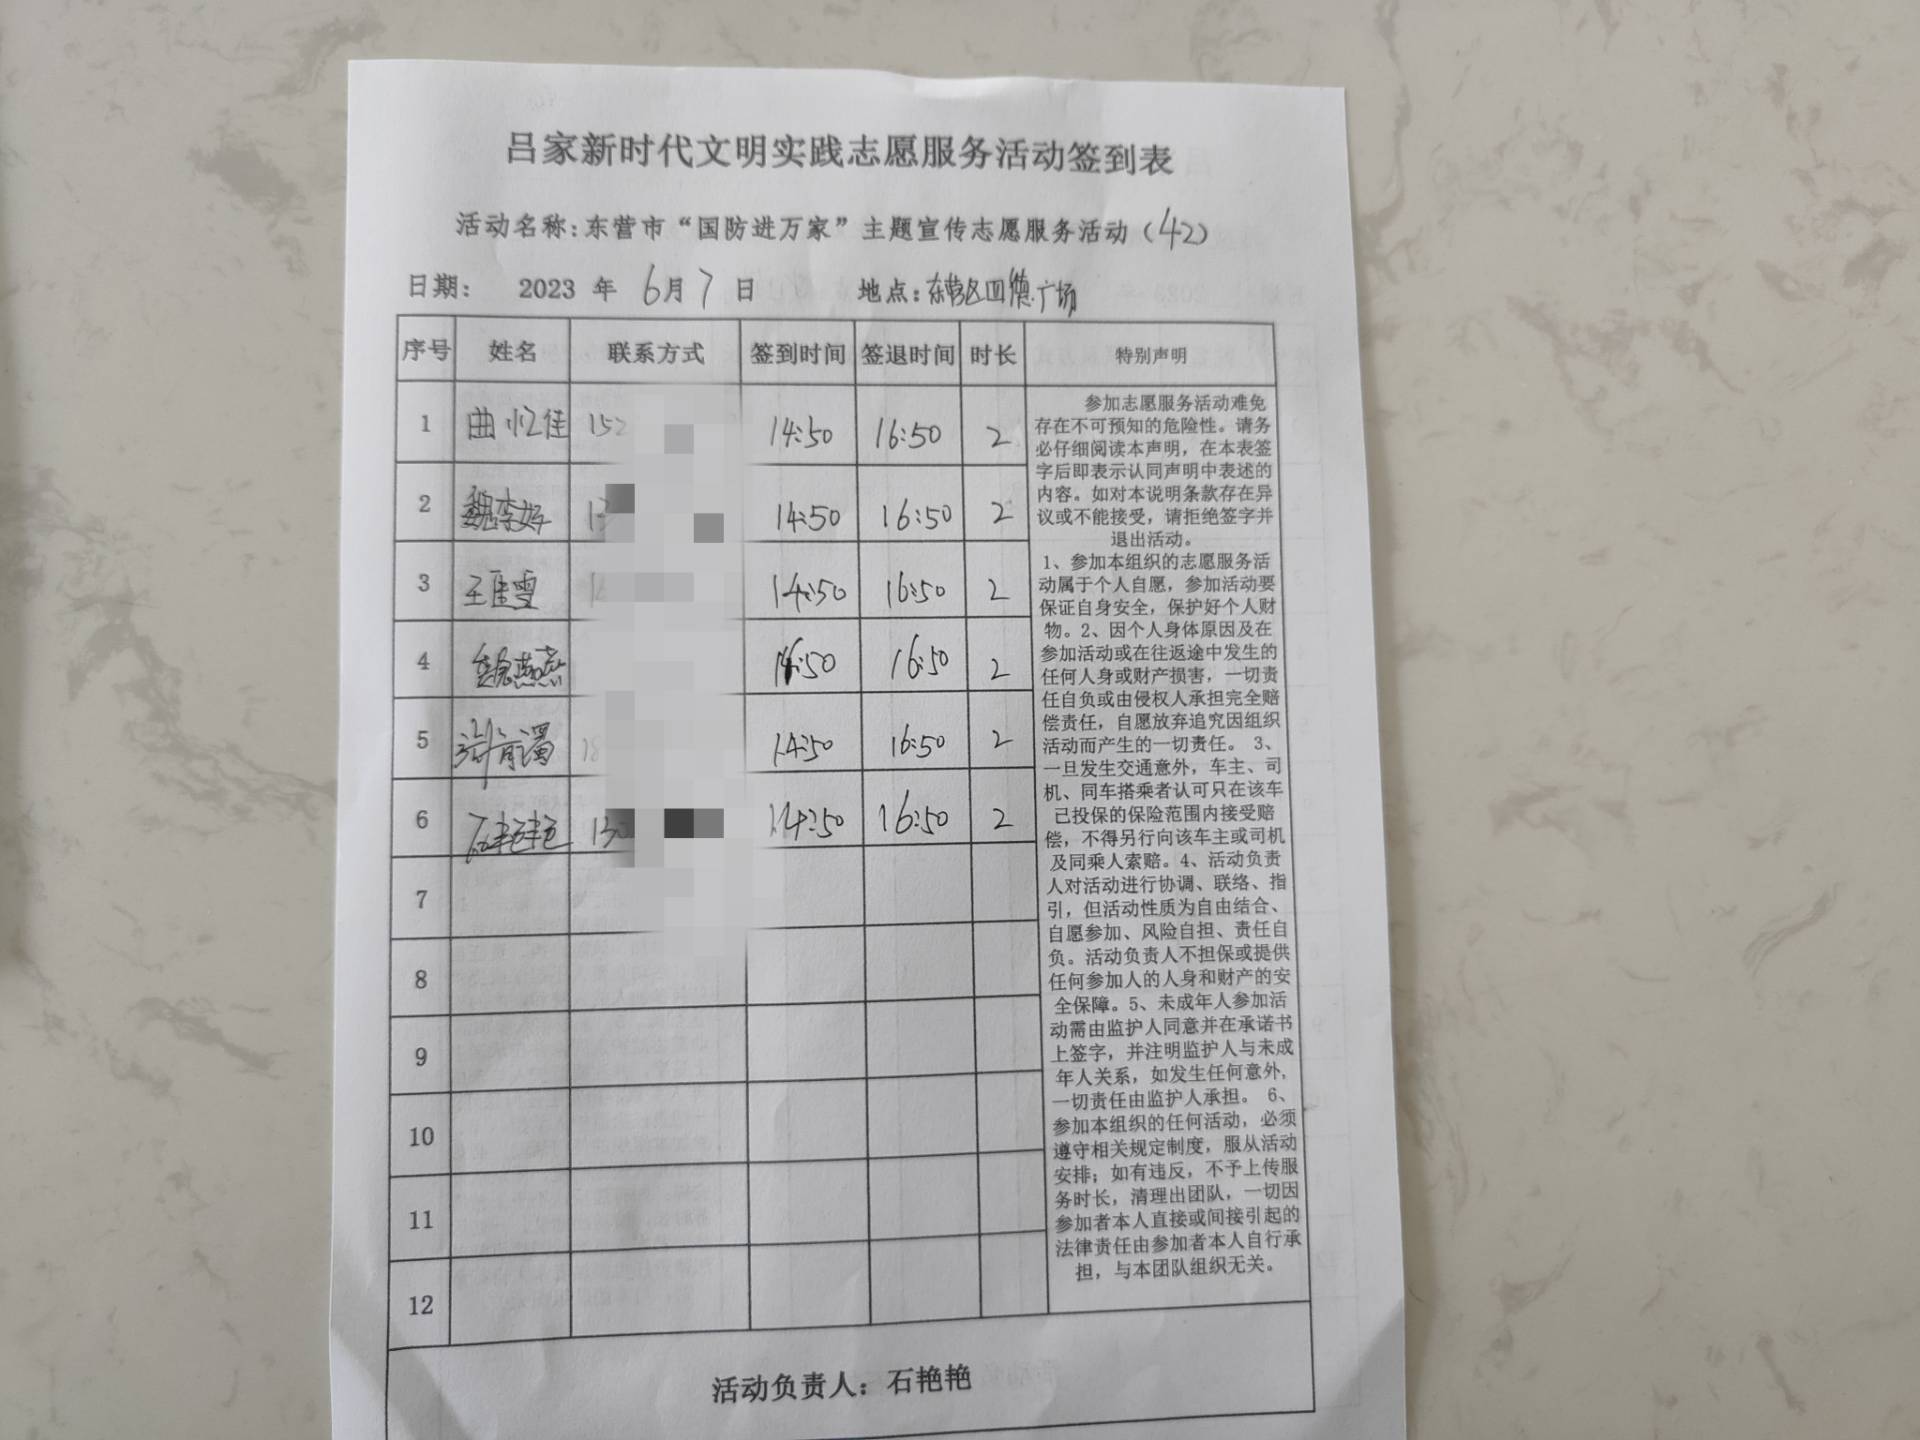 吕家新时代文明实践志愿服务活动签到表
活动名称:东营市“国防进万家”主题宣传志愿服务活动（42）
日期： 2023 年 6月7 日 地点:东营区四德广场
序号 姓名 联系方式 签到时间 签退时间 时长 特别声明
1 曲忆佳 152 14:50 16:50 2
2 魏李好 13 14:50 16:50 2
3 王佳雪 14:50 16:50 2
4 魏燕燕 14:50 16:50 2
5 18 14:50 16:50 2
6 石艳艳 130 14:50 16:50 2
7
8
9
10
11
12
参加志愿服务活动难免
存在不可预知的危险性。请务
必仔细阅读本声明，在本表签
字后即表示认同声明中表述的
内容。如对本说明条款存在异
议或不能接受，请拒绝签字并
退出活动。
1、参加本组织的志愿服务活
动属于个人自愿，参加活动要
保证自身安全，保护好个人财
物。2、因个人身体原因及在
参加活动或在往返途中发生的
任何人身或财产损害，一切责
任自负或由侵权人承担完全赔
偿责任，自愿放弃追究因组织
活动而产生的一切责任。 3、
一旦发生交通意外，车主、司
机、同车搭乘者认可只在该车
已投保的保险范围内接受赔
偿，不得另行向该车主或司机
及同乘人索赔。4、活动负责
人对活动进行协调、联络、指
引，但活动性质为自由结合、
自愿参加、风险自担、责任自
负。活动负责人不担保或提供
任何参加人的人身和财产的安
全保障。5、未成年人参加活
动需由监护人同意并在承诺书
上签字，并注明监护人与未成
年人关系，如发生任何意外，
一切责任由监护人承担。 6、
参加本组织的任何活动，必须
遵守相关规定制度，服从活动
安排；如有违反，不予上传服
务时长，清理出团队，一切因
参加者本人直接或间接引起的
法律责任由参加者本人自行承
担，与本团队组织无关。
活动负责人：石艳艳